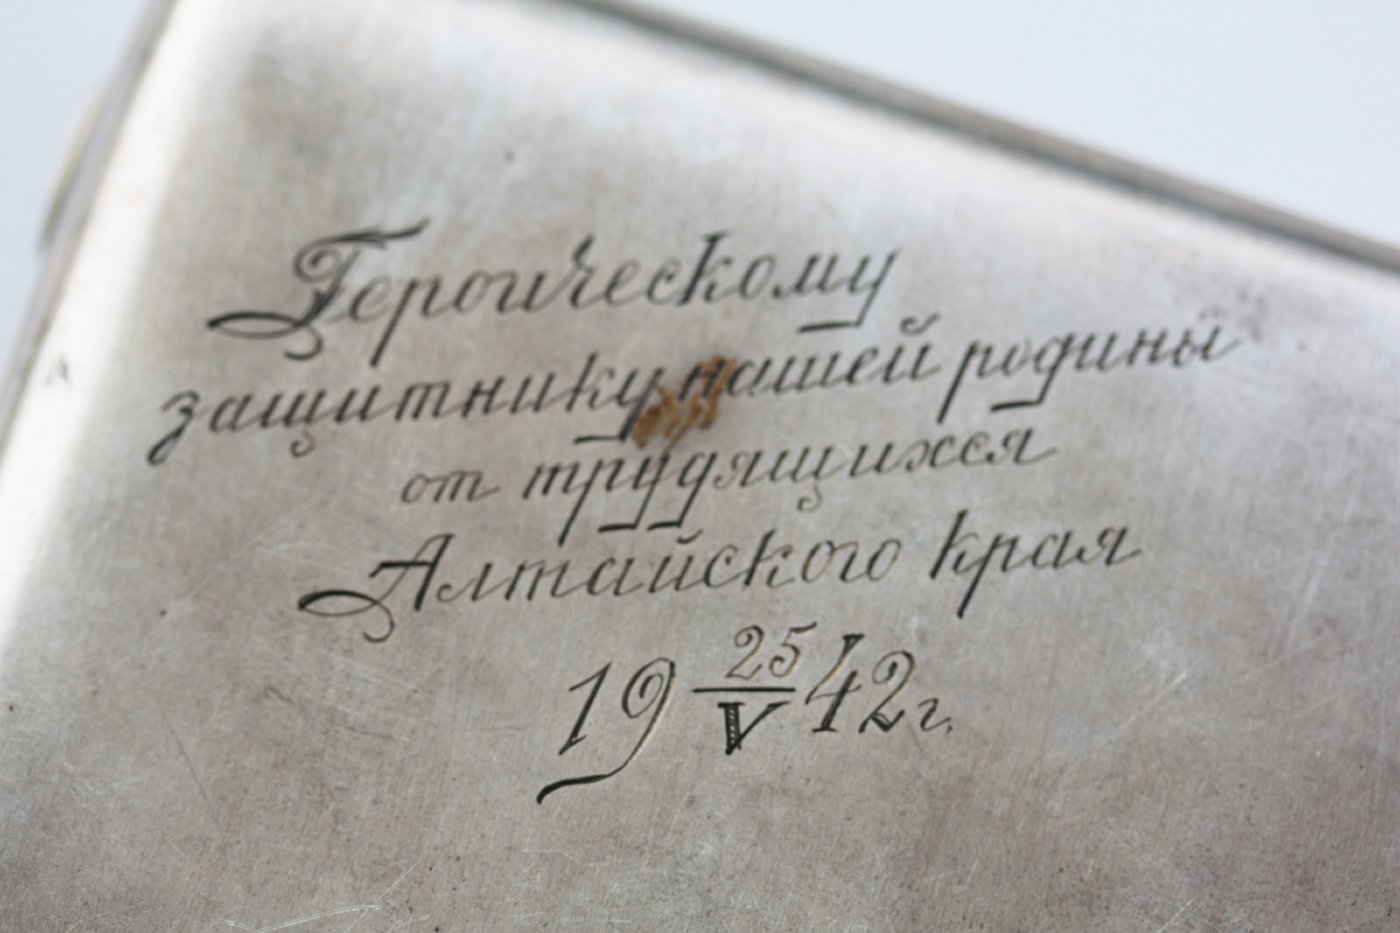 Героическому
защитнику нашей родины
от трудящихся
Алтайского края
19 25/V 42 г.